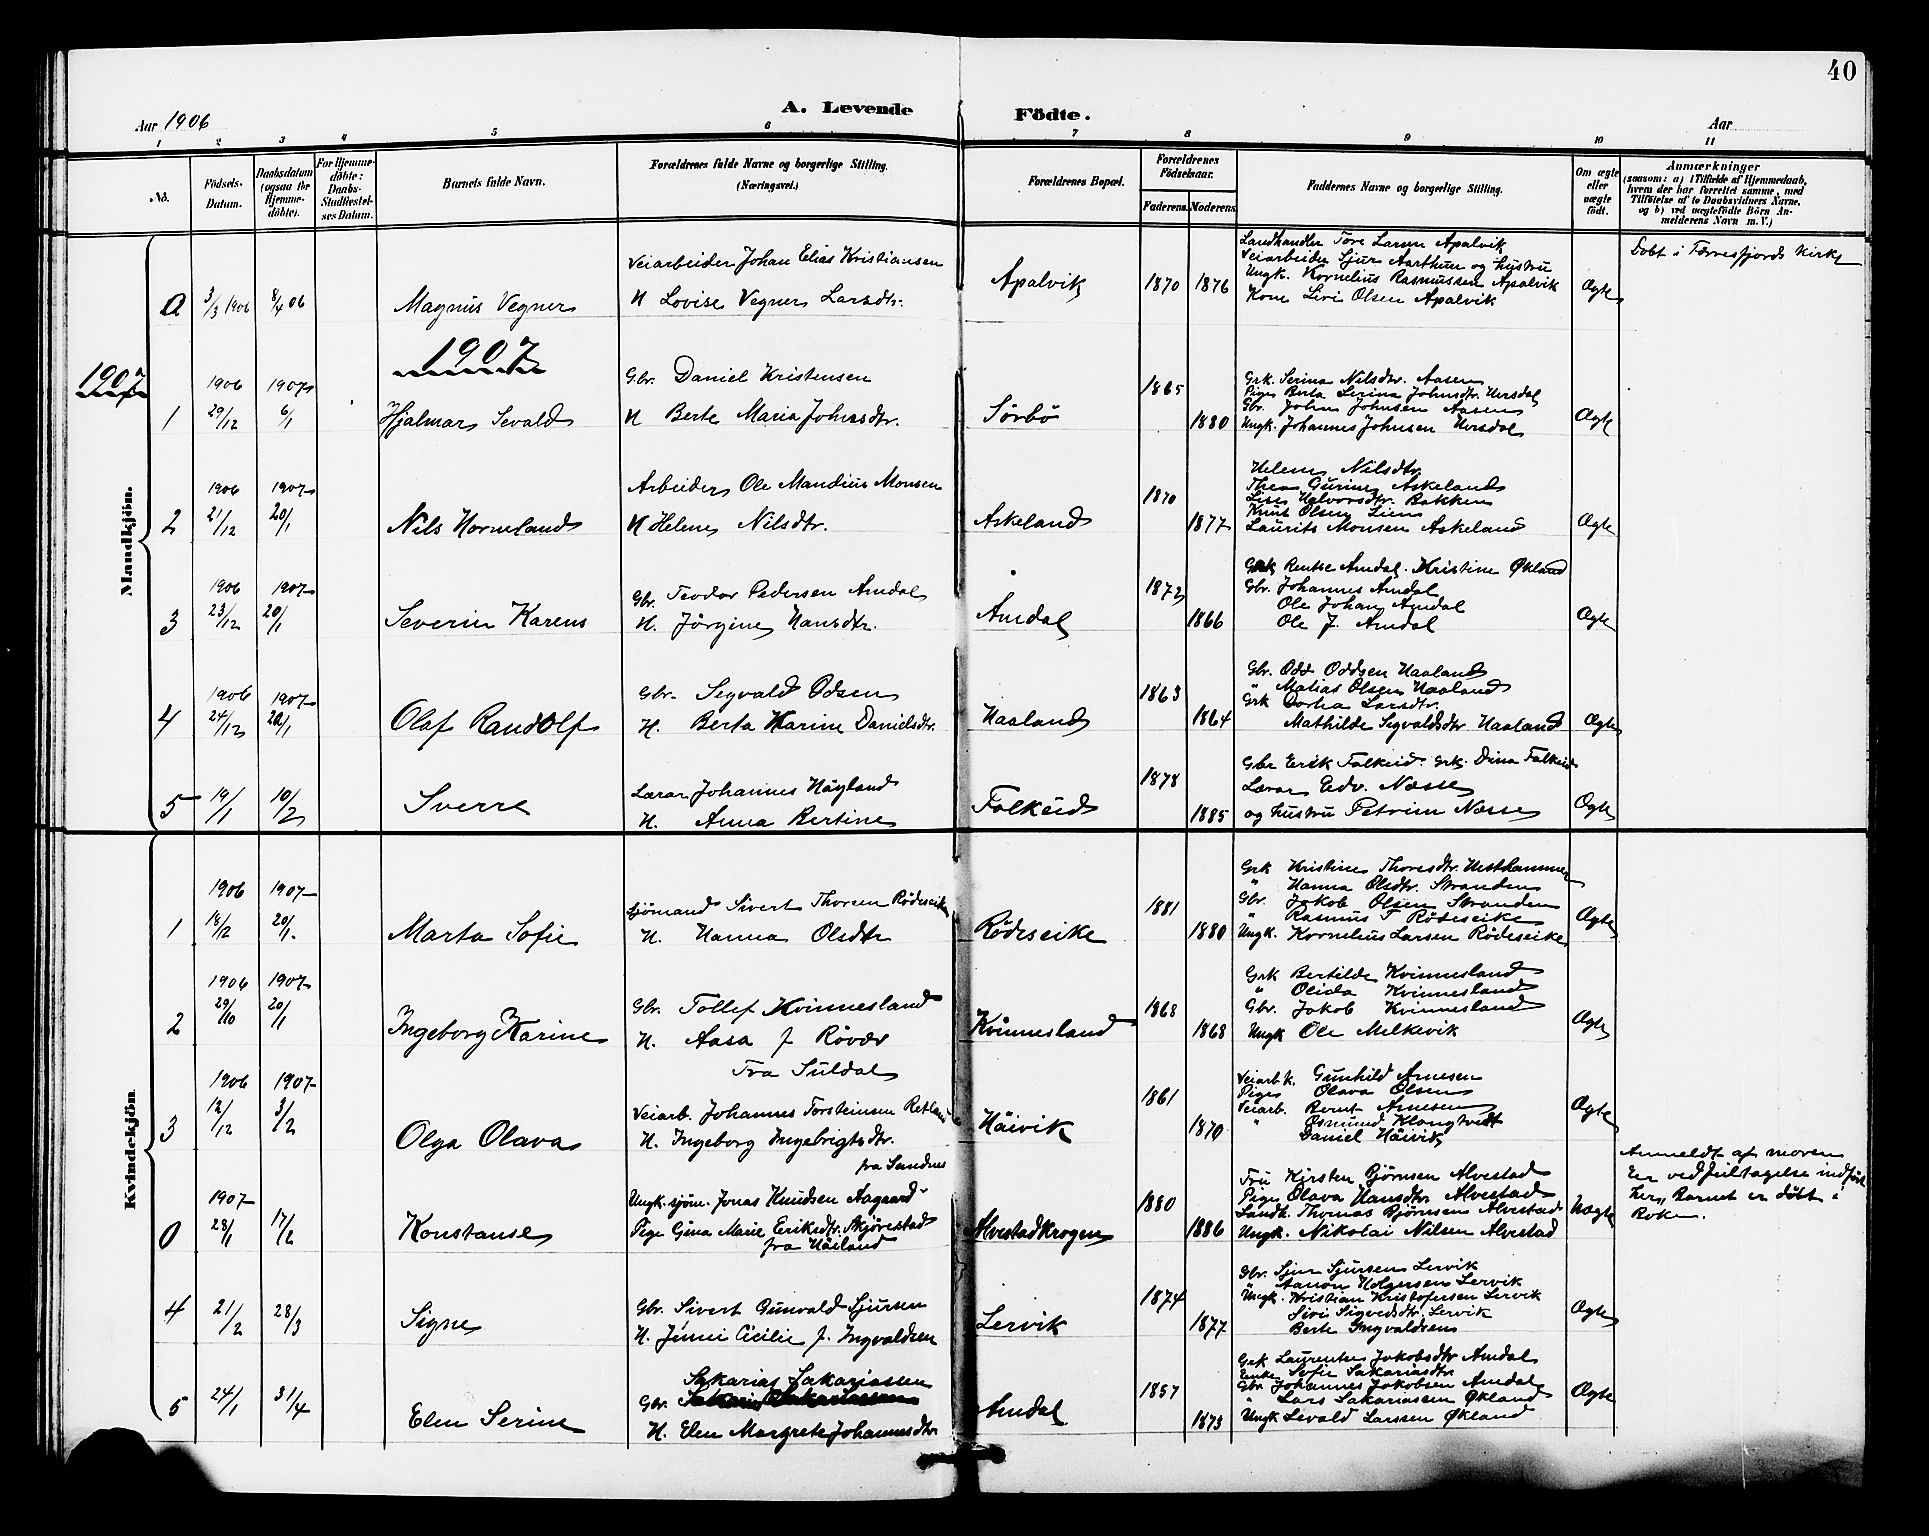 40
A. Levende Födte.
Aar 1906
Aar
1 2 3 4 5 6 7 8 9 10 11
No.
Födsels-Datum.
Daabsdatum (ogsaa for Hjemme-döbte).
For Hjemme-döbte: Daabs-Stadfæstel-ses Datum.
Barnets fulde Navn.
Forældrenes fulde Navne og borgerlige Stilling. (Næringsvei.)
Forældrenes Bopæl.
Forældrenes Födselsaar.
Faderens. Moderens.
Faddernes Navne og borgerlige Stilling.
Om ægte eller uægte födt.
Anmærkninger
(saasom: a) i Tilfælde af Hjemmedaab, hvem der har forrettet samme, med Tilföielse af to Daabsvidners Navne, og b) ved uægtefödte Börn An-melderens Navn m. V.)
Mandkjön.
0 3/3 1906 8/4 06 Magnus Vegner
Veiarbeider Johan Elias Kristiansen
H Lovise Vegner Larsdtr.
Apalvik 1870 1876
Landhandler Tore Larsen Apalvik
Veiarbeider Sjur Aarthun og hustru
Ungk. Kornelius Rasmussen Apalvik
Kone Sivi Olsen Apalvik
Ægte
Døbt i Førresfjords Kirke
1907
1907
1 1906 29/12 1907 6/1 Hjalmar Sevald
Gbr. Daniel Kristensen
H Berte Maria Johnsdtr.
Sørbø 1865 1880
Grk. Serina Nilsdtr. Aasen
Pige Berta Serina Johnsdtr. Ursdal
Gbr. John Johnsen Aasen
Ungk. Johannes Johnsen Ursdal
Ægte
2 1906 21/12 1907 20/1 Nils Horneland
Arbeider Ole Mandius Monsen
H Helene Nilsdtr.
Askeland 1870 1877
Helene Nilsdtr.
Thea Gurine Askeland
Lise Halvorsdtr. Bakken
Knut Olsen Lien
Laurits Monsen Askeland
Ægte
3 1906 23/12 1907 20/1 Severin Karens
Gbr. Teodor Pedersen Amdal
H. Jørgine Hansdtr.
Amdal 1872 1866
Grk Rentse Amdal. Kristine Økland
Gbr. Johannes Amdal
Ole Johan Amdal
Ole J. Amdal
Ægte
4 1906 24/12 1907 20/1 Olaf Randolf
Gbr. Segvald Odsen
H. Berta Karine Danielsdtr.
Haaland 1863 1864
Gbr. Odd Oddsen Haaland
" Matias Olsen Haaland
Grk Dortea Larsdtr.
Mathilde Segvaldsdtr. Haaland
Ægte
5 19/1 10/2 Sverre
Lærar Johannes Høyland
H. Anna Bertine
Falkeid 1878 1885
Gbr Erik Falkeid. Grk. Dina Falkeid
Lærar Edv. Næsse
og hustru Petrine Næsse
Ægte
Kvindekjön.
1 1906 18/12 1907 20/1. Marta Sofie
Sjömand Sivert Thoresen Rødseike
H. Hanna Olsdtr
Rødeseike 1881 1880
Grk Kristine Thoresdtr. Vesthammer
" Hanna Olsdtr. Stranden
Gbr. Jakob Olsen Stranden
" Rasmus T Rødeseike
Ungk. Kornelius Larsen Rødeseike
Ægte
2 1906 29/10 1907 20/1 Ingeborg Karine
Gbr. Tollef Kvinnesland
H. Aasa f Røvær
Fra Suldal
Kvinnesland 1868 1868
Grk Bertilde Kvinnesland
" Olida Kvinnesland
Gbr. Jakob Kvinnesland
Ungk Ole Melkevik
Ægte
3 1906 12/12 1907 3/2 Olga Olava
Veiarb. Johannes Torsteinsen
H. Ingeborg Ingebrigtsdtr.
fra Sandnes
Håivik 1861 1870
Veiarb k. Gunhild Arnesen
Pige Olava Olsen
Veiarb. Bernt Arnesen
" Osmund Klongtvedt
Daniel Håivik
Ægte
0 1907 28/1 17/2 Konstanse
Ungk. sjöm. Jonas Knudsen Aagaard
Pige Gina Marie Eriksdtr. Skjørestad
fra Håiland
Alvestadkrogen 1880 1886
Fru Kirsten Bjørnsen Alvestad
Pige Olava Hansdtr Alvestad
Landh. Thomas Bjørnsen Alvestad
Ungk. Nikolai Nilsen Alvestad
Uægte
Anmeldt af moren
Er ved feiltagelse indført
her, Barnet er døbt i
Bokn.
4 21/2 28/3 Signe
Gbr. Sivert Gunvald Sjursen
H. Jenni Cicilie f. Ingvaldsen
Lervik 1874 1877
Gbr. Sjur Sjursen Lervik
" Aanon Holgersen Lervik
Ungk. Kristian Kristofersen Lervik
Sivi Sigvedsdtr. Lervik
Berte Ingvaldsen
Ægte
5 24/1 31/4 Elen Serine
Sakarias Sakariassen
Gbr.
H. Elen Margrete Johannesdtr
Amdal 1857 1873
Grk Laurentse Jakobsdtr Amdal
Enke Sofie Sakariasdtr.
Gbr Johannes Jakobsen Amdal
" Lars Sakariassen Økland
Ungk Sevald Larssen Økland
Ægte